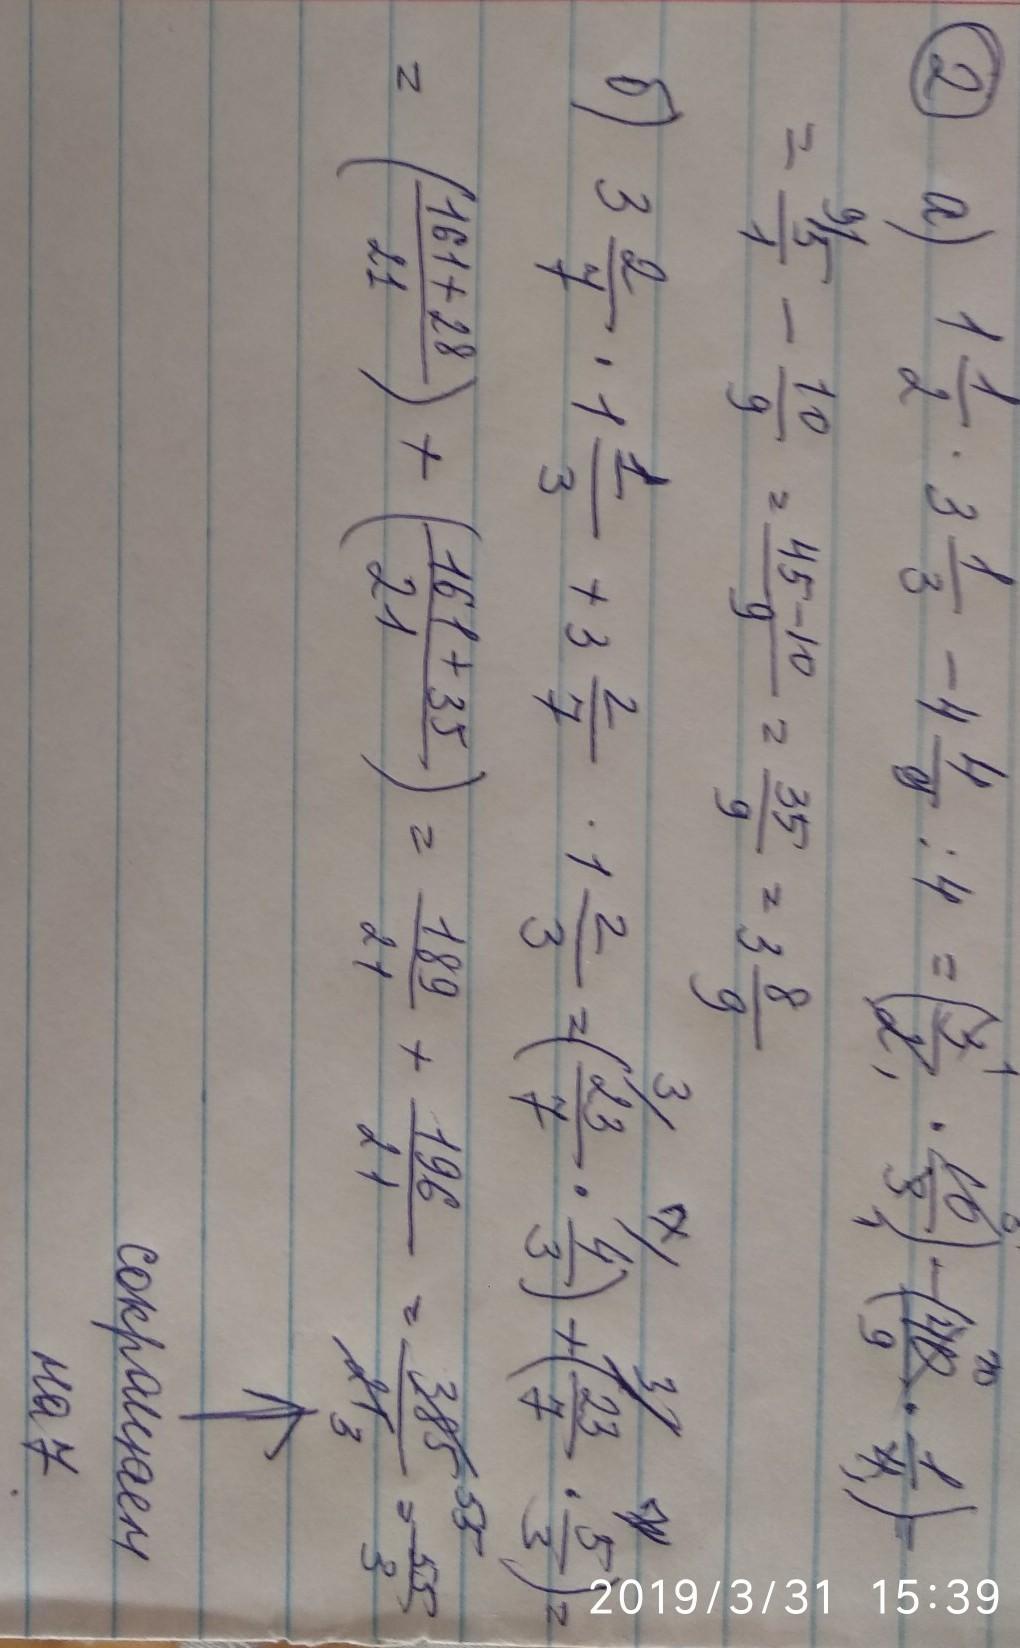 2 а) 1 1/2 · 3 1/3 − 4 4/9 : 4 = (3/2 · 10/3) − (40/9 · 1/4) =
= 5/1 − 10/9 = 45−10/9 = 35/9 = 3 8/9
б) 3 2/7 · 1 1/3 + 3 2/7 · 1 2/3 = (23/7 · 4/3) + (23/7 · 5/3) =
= (161+28/21) + (161+35/21) = 189/21 + 196/21 = 385/21 = 55/3
сокращаем
на 7
2019/3/31 15:39